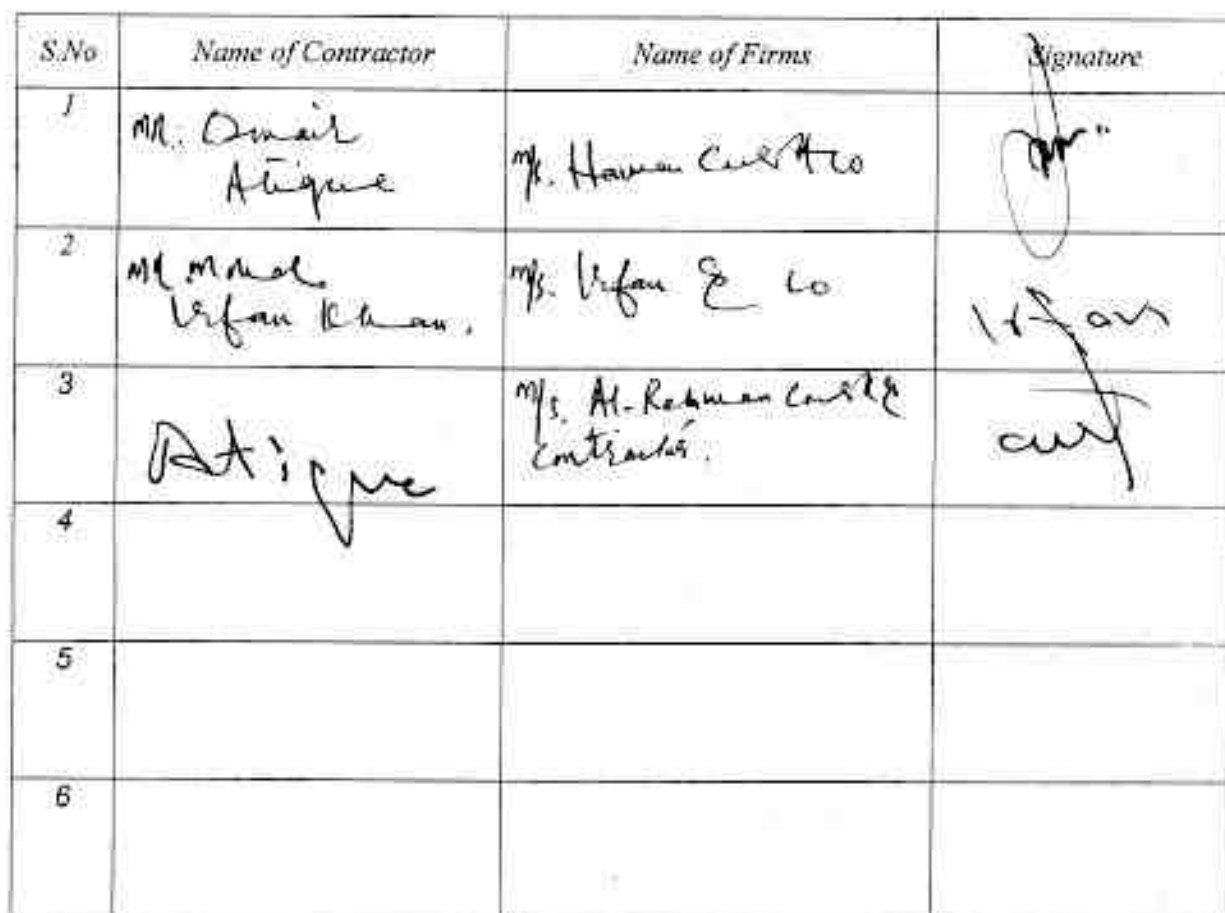 S.No Name of Contractor Name of Firms Signature
1
MR. Omair
Atique
M/s.
2
MR Mohd.
Irfan Khan.
M/s. Irfan & Co
Irfan
3
Atique
M/s. Al-Rehman Const &
Contractor.
4
5
6